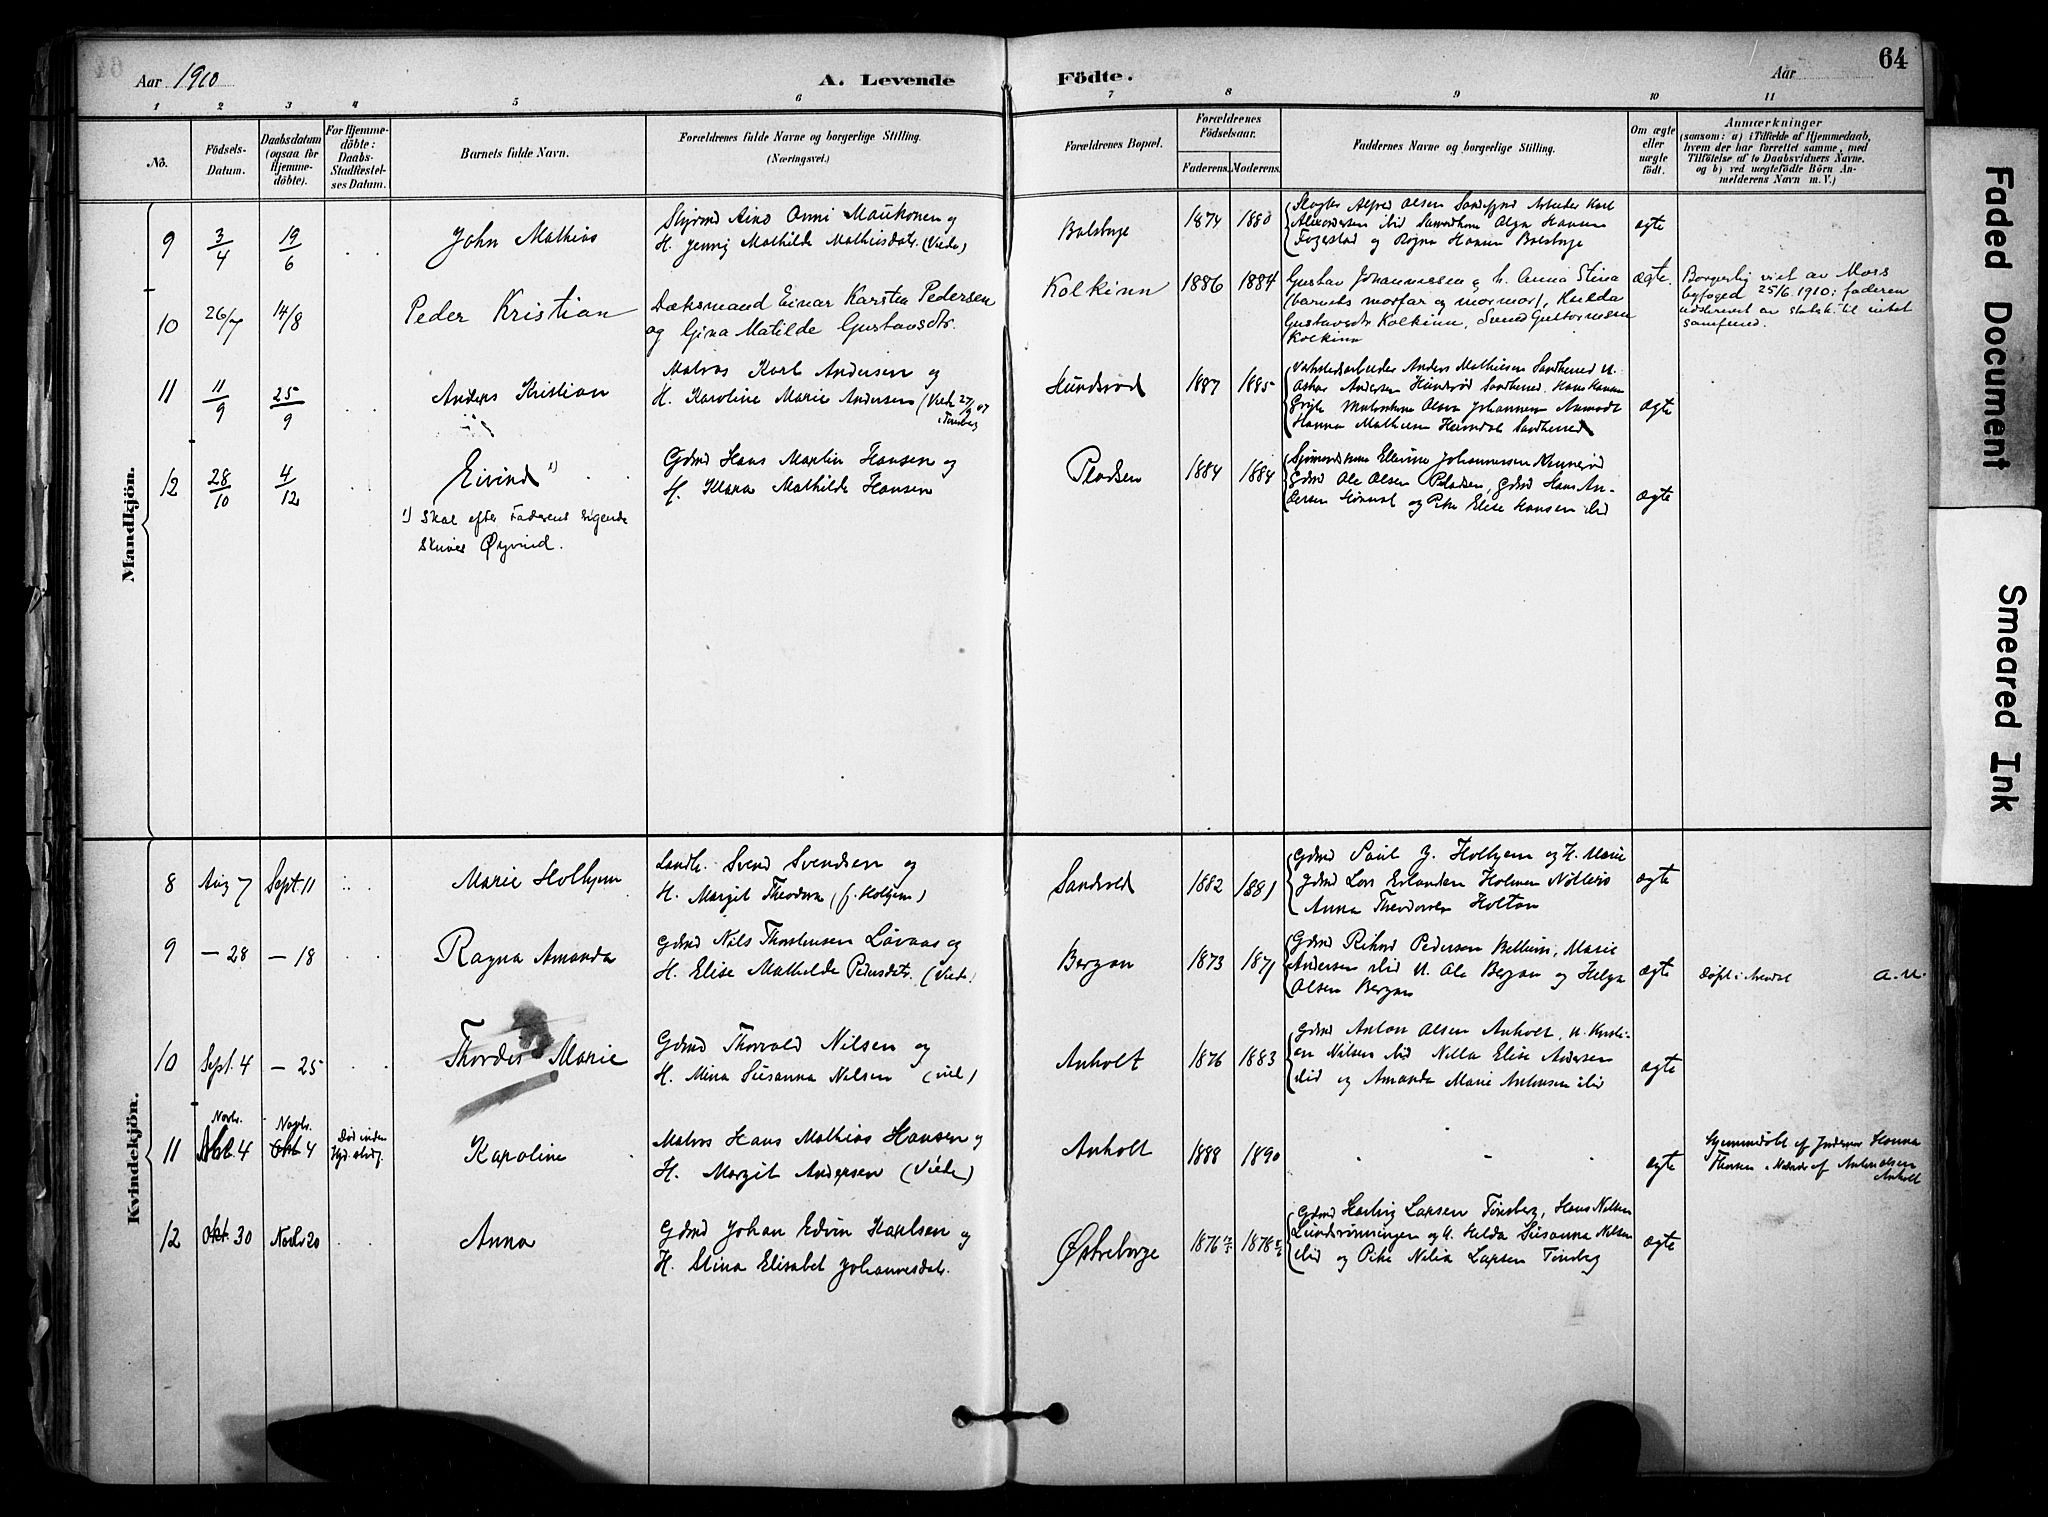 64
Aar 1910
A. Levende
Födte.
Aar
1 2 3 4 5 6 7 8 9 10 11
No.
Födsels-
Datum.
Daabsdatum
(ogsaa for
Hjemme-
döbte).
For Hjemme-
döbte:
Daabs-
Stadfæstel-
ses Datum.
Barnets fulde Navn.
Forældrenes fulde Navne og borgerlige Stilling.
(Næringsvei.)
Forældrenes Bopæl.
Forældrenes
Födselsaar.
Faderens. Moderens.
Faddernes Navne og borgerlige Stilling.
Om ægte
eller
uægte
födt.
Anmærkninger
(saasom: a) i Tilfælde af Hjemmedaab,
hvem der har forrettet samme, med
Tilföielse af to Daabsvidners Navne.
og b) ved uægtefödte Börn An-
melderens Navn m. V.)
Mandkjön.
9
3/4
19/6
John Mathias
Aino Onni Maukonen og
H. Jenny Mathilde Mathisdatr. (Viede)
Bolsborge
1874 1880
Alfred Olsen Sandefjord Arbeider Karl
Olga Hansen
Fogestad og Ragna Hansen Bolsborge
ægte
10
26/7
14/8
Peder Kristian
Dæksmand Einar Karsten Pedersen
og Gina Matilde Gustavsdtr.
Kolkinn
1886 1884
Gustav Johannessen og h. Anna Stina
(barnets morfar og mormor), Hulda
Gustavsdtr Kolkinn, Svend Guttormsen
Kolkinn
ægte.
Borgerlig viet av Moss
byfoged 25/6 1910; faderen
udskrevet av statsk. til intet
samfund.
11
11/9
25/9
Anders Kristian
Matros Karl Andersen og
H. Karoline Marie Andersen (Viede 27/9 07
i Tønsberg
Hundsrød
1887 1885
Anders Mathisen Sandhened U.
Oskar Andersen Hundsrød Sandhened, Hans Hansen
Olsen Johannen
Hanna Mathisen Heimdal Sandhened
ægte
12
28/10
4/12
Eivind 1)
Gdmd Hans Martin Hansen og
H. Klara Mathilde Hansen
Pladsen
1884 1884
Ellevine Johannessen
Gdmd Ole Olsen Pladsen, Gdmd Hans An-
dersen og Pike Elise Hansen ibid
ægte
1) Skal efter Faderens sigende
skrives Øyvind.
Kvindekjön.
8
Aug 7
Sept. 11
Marie Holhjem
Landh. Svend Svendsen og
H. Margit Theodora (f. Holhjem)
Sandvold
1882 1881
Gdmd Paul J. Holhjem og H. Marie
Gdmd Lars Erlandsen Holmen Nøtterø
Anna Theodorsen Holtan
ægte
9
— 28
— 18
Ragna Amanda
Gdmd Nils Thorstensen Løvaas og
H. Elise Mathilde Pedersdtr. (Viede)
Bergan
1873 1871
Gdmd Rikard Pedersen Marie
Andersen ibid U. Ole Bergan og Helga
Olsen Bergan
ægte
Døpt i Arendal a.u.
10
Sept. 4
— 25
Thordis Marie
Gdmd Thorvald Nilsen og
H. Mina Susanna Nilsen (viet)
Anholt
1876 1883
Gdmd Anton Olsen Anholt, U. Kristi-
an Nilsen ibid Nilla Elise Andersen
ibid og Amanda Marie Antonsen ibid
ægte
11
Novbr.
4
Novbr.
Okt 4
Død inden
Karoline
Matros Hans Mathias Hansen og
H. Margit Andersen (Viede)
Anholt
1888 1890
ægte
Hjemmedøbt af Jordemor Hanna
Thorsen i Nærvær af Anton Olsen
Anholt
12
Okt. 30
Novbr 20
Anna
Gdmd Johan Edvin Karlsen og
H. Stina Elisabet Johannesdatr.
Østreborge
1876 1878
Gdmd Hartvig Larsen Tønsberg, Hans Nilsen
Lundsrønningen og h. Helda Susanna Nilsen
ibid og Pike Nilia Larsen Tønsberg
ægte
Faded Document
Smeared Ink